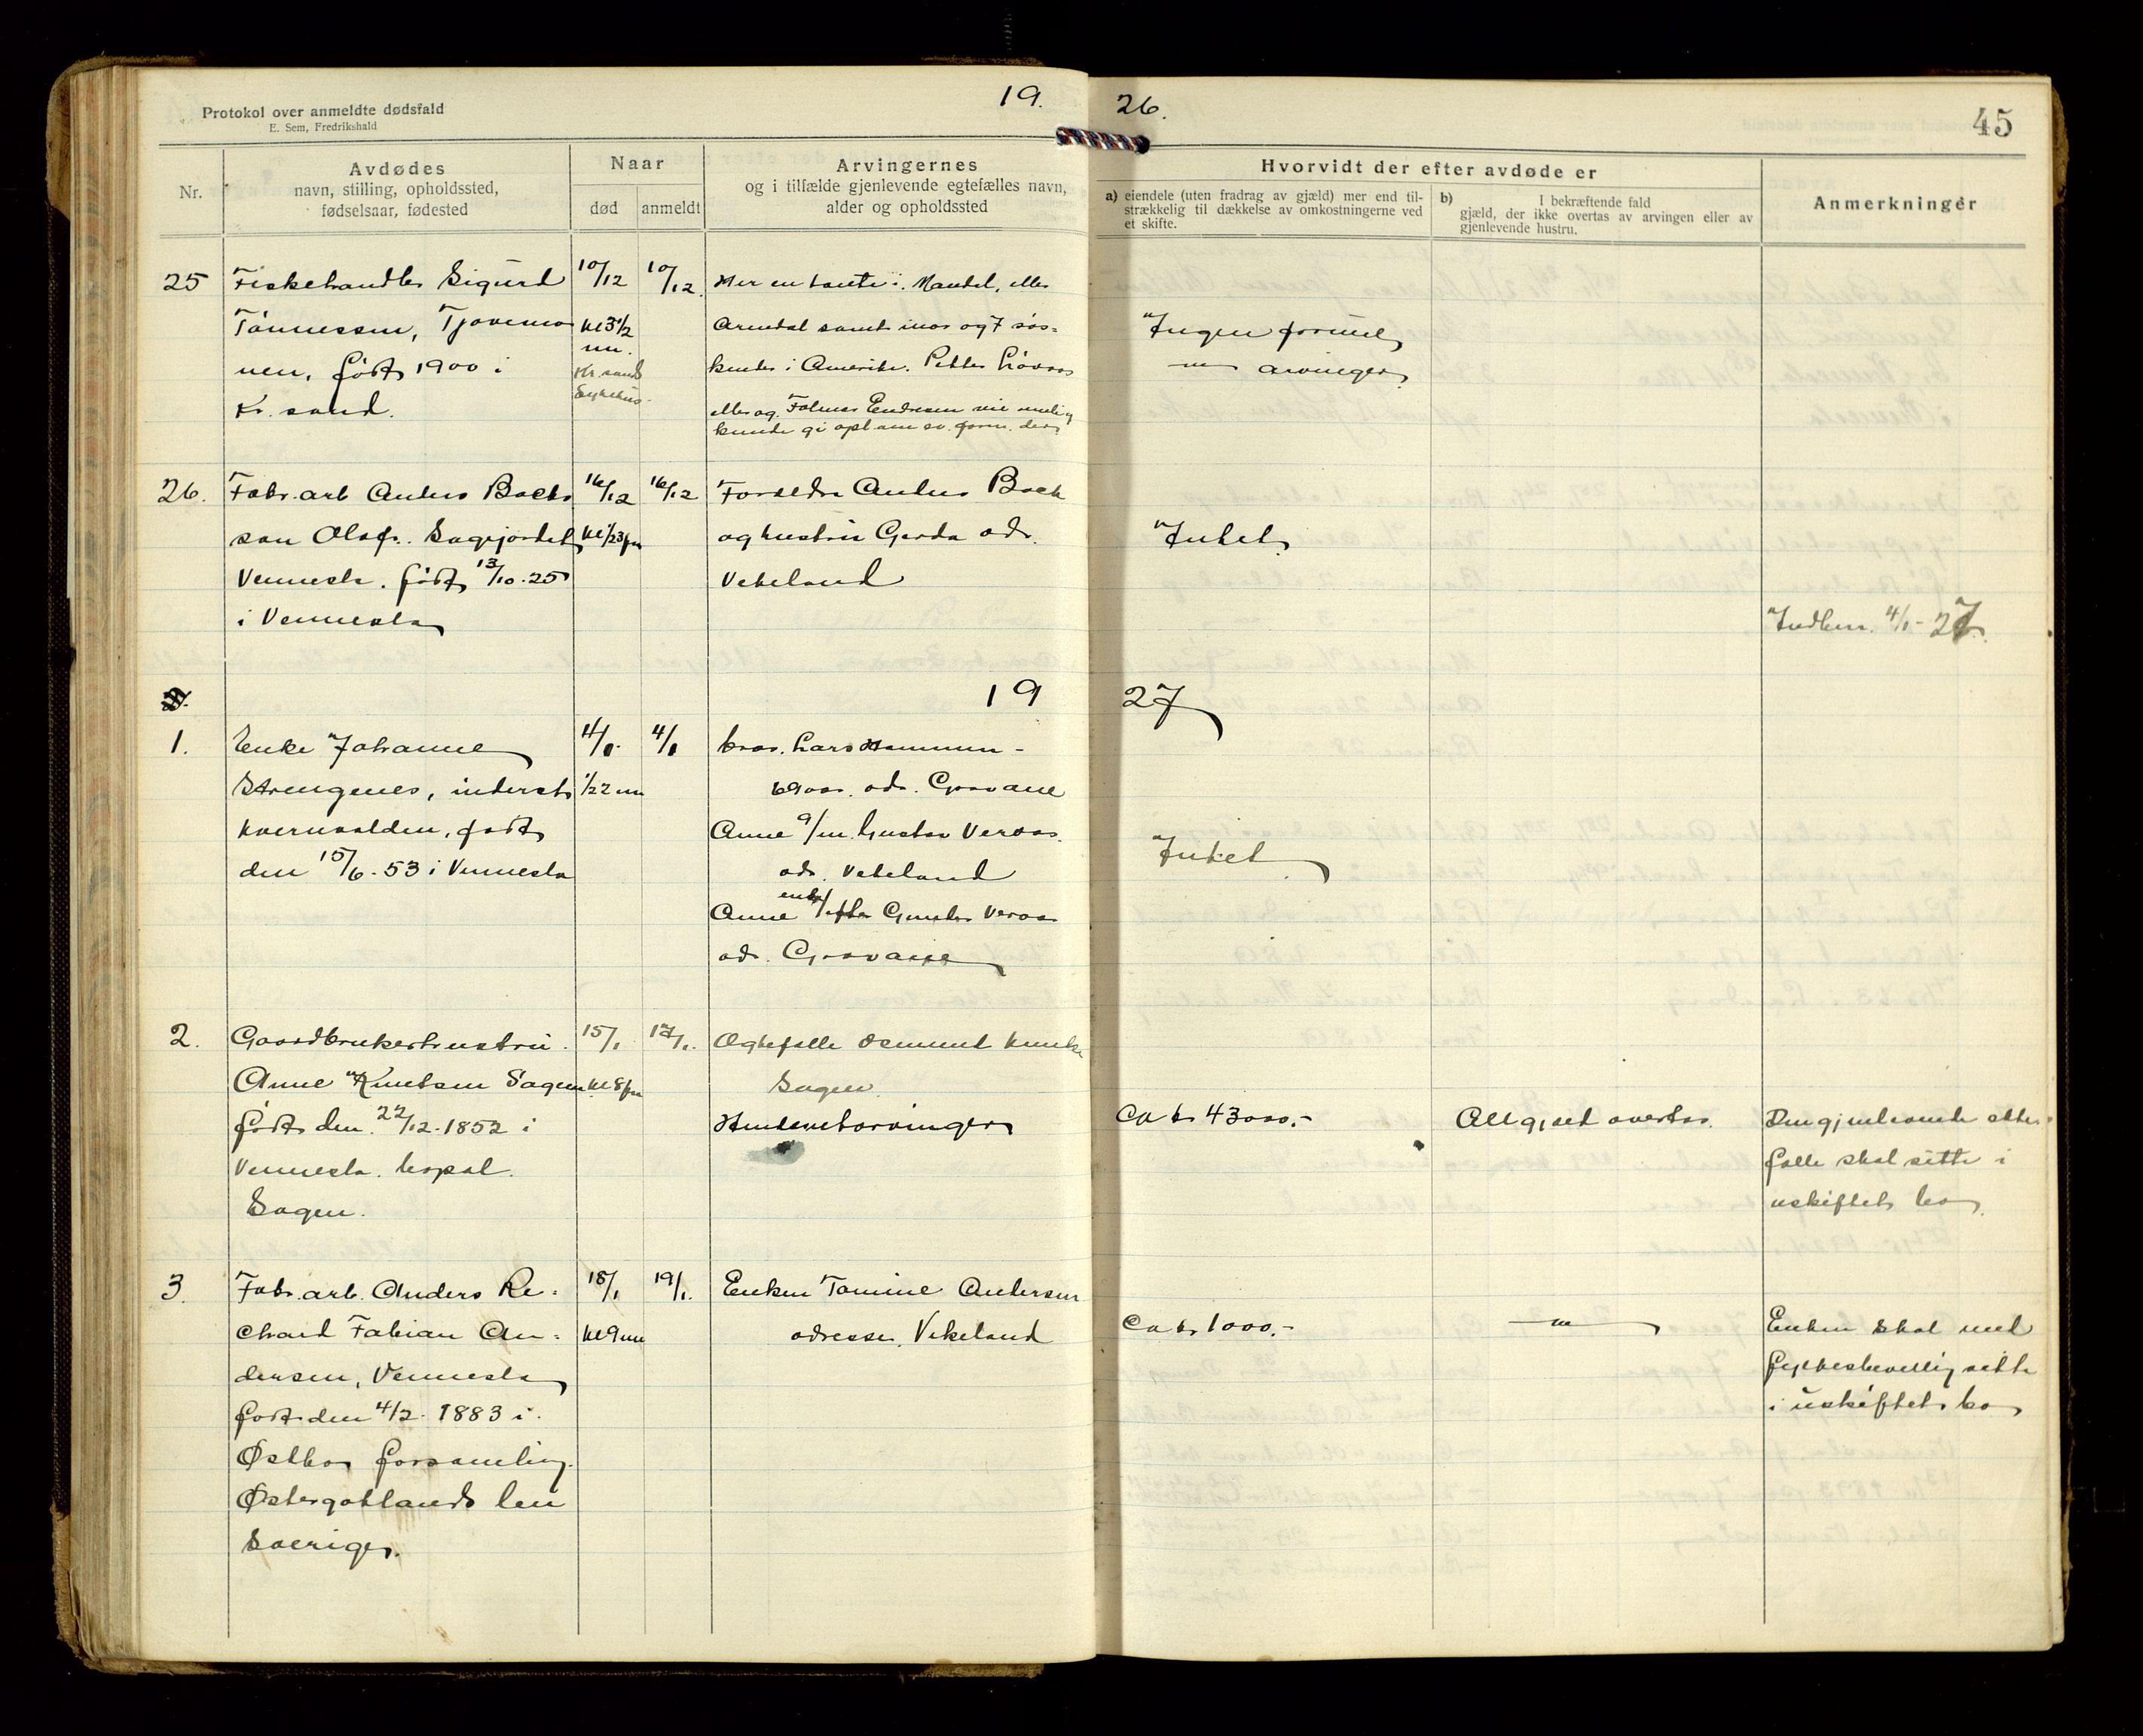 Protokol over anmeldte dødsfald
E. Sem, Fredrikshald
19.
26.
45
Nr.
Avdødes
navn, stilling, opholdssted,
fødselsaar, fødested
Naar
død
anmeldt
Arvingernes
og i tilfælde gjenlevende egtefælles navn,
alder og opholdssted
Hvorvidt der efter avdøde er
a) eiendele (uten fradrag av gjæld) mer end til-
strækkelig til dækkelse av omkostningerne ved
et skifte.
b) I bekræftende fald
gjæld, der ikke overtas av arvingen eller av
gjenlevende hustru.
Anmerkninger
25
Fiskehandler Sigurd
Tönnessen,
nen, født 1900 i
Kr.sand.
10/12
kl 3 1/2
Kr.sands
Sykehus.
10/12.
Har en tante i Mandal, eller
Arendal samt mor og 7 søs=
kender i Amerika. Petter Løvaas
eller og
kunde gi opl. om
Ingen formue
" arvinger
26.
Fabr.arb Anders Backs
søn Olaf. Sagjordet
Vennesla. født 13/10-25
i Vennesla
16/12
16/12
Foreldre Anders Back
og hustru Gerda adr.
Vikeland
Intet
Indber. 4/1-27.
19
27
1.
Enke Johanne
Strengenes, inderst
Kvernvolden, født
den 15/6-53 i Vennesla
4/1
4/1
bror. Lars Hommen-
69 aar. adr. Grovane
Anne g/m. Gustav Veraas.
adr. Vikeland
Anne enke/efter Gunder Veraas
adr. Grovane
Intet
2.
Gaardbrukerhustru
Anne Knutsen Sagen
født den 22/12-1852 i
Vennesla. bopæl.
Sagen.
15/1
kl 8 fm
17/1.
Ægtefælle Osmund Knutsen
Sagen
Hendes utarvinger
Ca kr 43000.-
All gjæld overtas.
Den gjenlevende ekte
fælle skal sitte i
uskiftet bo
3.
Fabr.arb. Anders Ri=
chard Fabian An=
dersen, Vennesla
født den 4/2-1883 i
Østbo forsamling.
Østergøtlands len
Sverige.
18/1
kl 9 nm
19/1.
Enken Tomine Andersen
adresse. Vikeland
Ca kr 1000.-
— " —
Enken skal med
fylkesbevillig sitte
i uskiftet bo